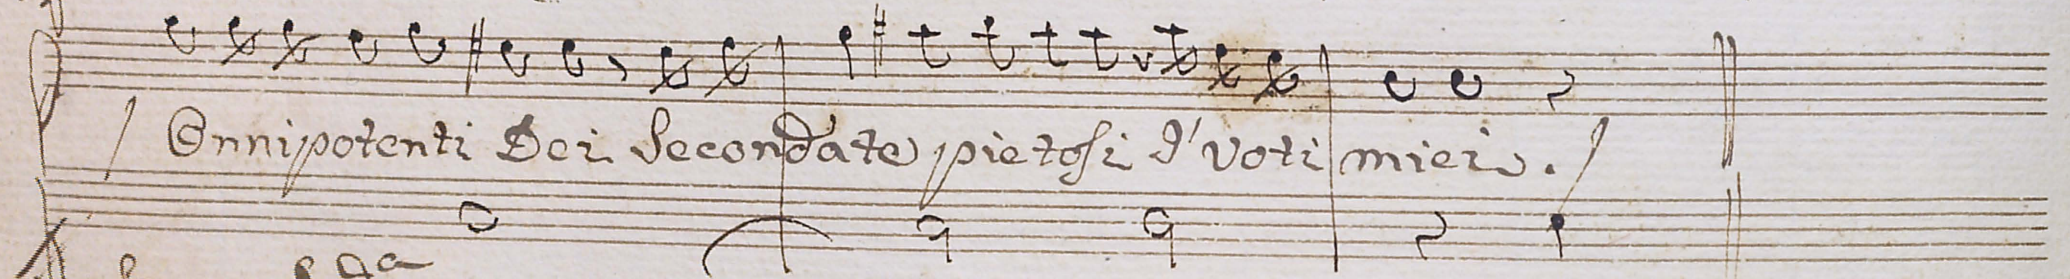 / Onnipotenti Dei Secondate pietosi I' voti miei. /